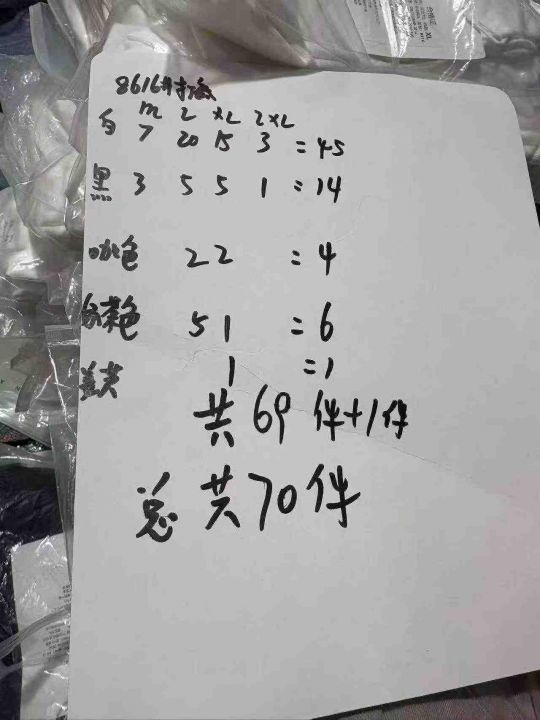 8616#打底
M L XL 2XL
白 7 20 15 3 =45
黑 3 5 5 1 =14
咖色 2 2 =4
茶色 5 1 =6
1 =1
共69件+1件
总共70件